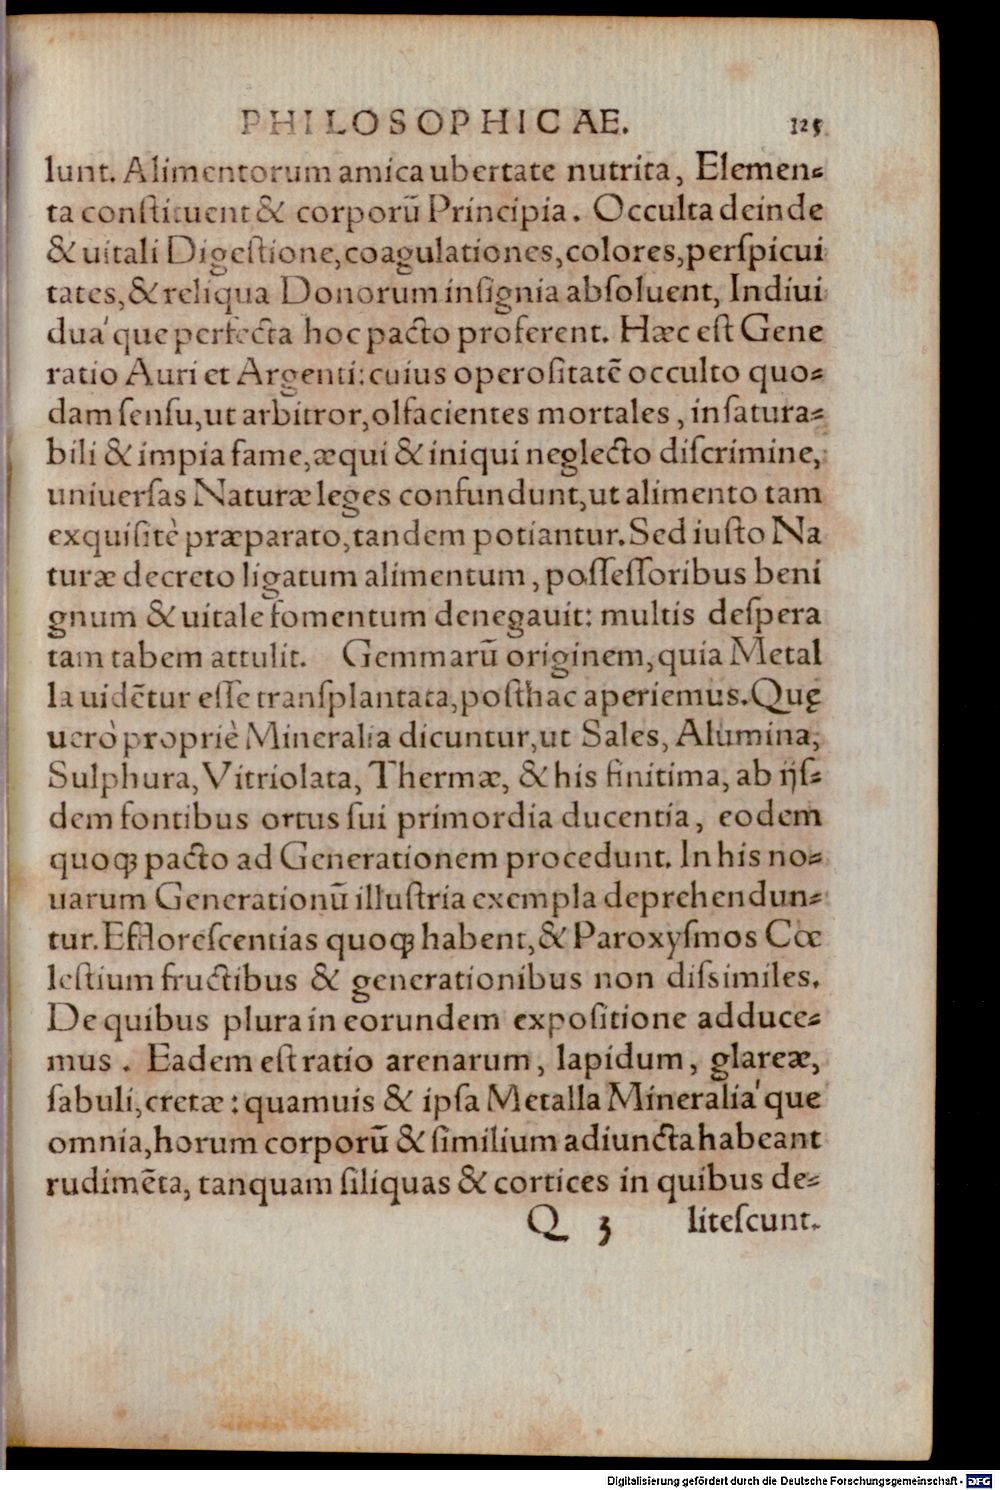 PHILOSOPHICAE. 125
lunt. Alimentorum amica ubertate nutrita, Elemen⸗
ta conſtituent & corporū Principia. Occulta deinde
& uitali Digeſtione, coagulationes, colores, perſpicui
tates, & reliqua Donorum inſignia abſoluent, Indiui
dua'que perfecta hoc pacto proferent. Hæc eſt Gene
ratio Auri et Argenti: cuius operoſitatē occulto quo⸗
dam ſenſu, ut arbitror, olfacientes mortales, inſatura⸗
bili & impia fame, æqui & iniqui neglecto diſcrimine,
uniuerſas Naturæ leges confundunt, ut alimento tam
exquiſitè præparato, tandem potiantur. Sed iuſto Na
turæ decreto ligatum alimentum, poſſeſſoribus beni
gnum & uitale fomentum denegauit: multis deſpera
tam tabem attulit. Gemmarū originem, quia Metal
la uidētur eſſe tranſplantata, poſthac aperiemus. Quę
uerò propriè Mineralia dicuntur, ut Sales, Alumina,
Sulphura, Vitriolata, Thermæ, & his finitima, ab ijſ⸗
dem fontibus ortus ſui primordia ducentia, eodem
quoqꝫ pacto ad Generationem procedunt. In his no⸗
uarum Generationū illuſtria exempla deprehendun⸗
tur. Effloreſcentias quoqꝫ habent, & Paroxyſmos Cœ
leſtium fructibus & generationibus non diſsimiles.
De quibus plura in eorundem expoſitione adduce⸗
mus. Eadem eſt ratio arenarum, lapidum, glareæ,
ſabuli, cretæ: quamuis & ipſa Metalla Mineralia'que
omnia, horum corporū & ſimilium adiuncta habeant
rudimēta, tanquam ſiliquas & cortices in quibus de⸗
Q 3 liteſcunt.
Digitalisierung gefördert durch die Deutsche Forschungsgemeinschaft - DFG